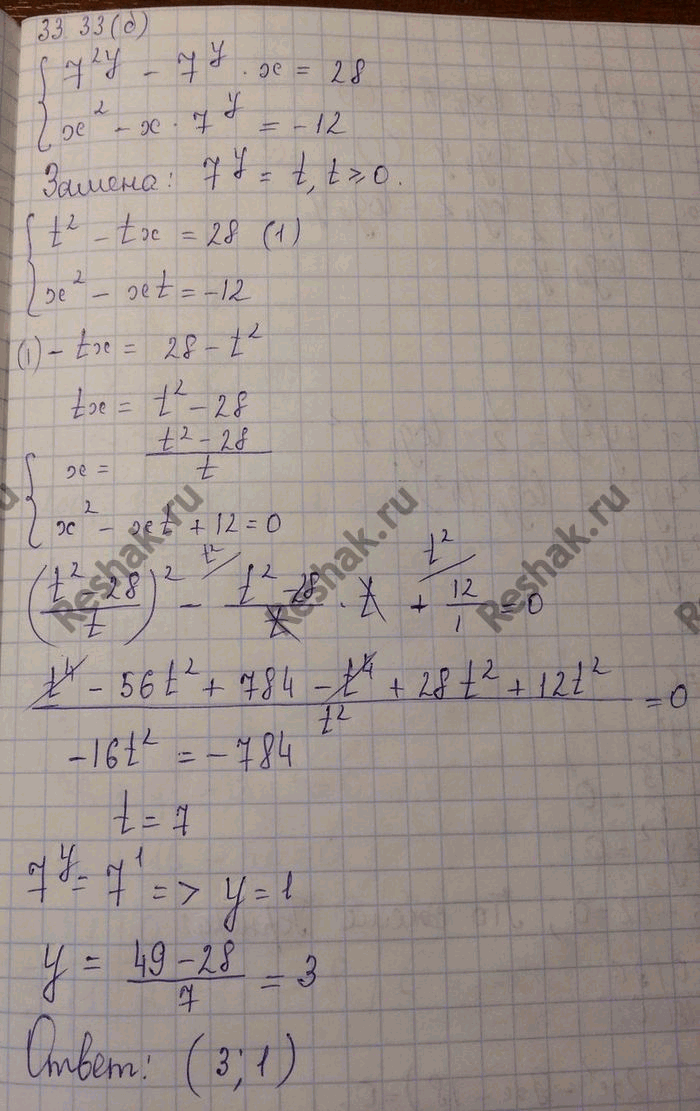 33 33(б)
7^{2y} - 7^y · x = 28
x^2 - x · 7^y = -12
Замена: 7^y = t, t ≥ 0.
t^2 - tx = 28 (1)
x^2 - xt = -12
(1) - tx = 28 - t^2
tx = t^2 - 28
x = \frac{t^2 - 28}{t}
x^2 - xt + 12 = 0
(\frac{t^2 - 28}{t})^2 - \frac{t^2 - 28}{t} · t + \frac{12}{1} = 0
t^2 t^2
\frac{t^4 - 56t^2 + 784 - t^4 + 28t^2 + 12t^2}{t^2} = 0
-16t^2 = -784
t = 7
7^y = 7^1 => y = 1
y = \frac{49 - 28}{7} = 3
Ответ: (3; 1)
Reshak.ru
Reshak.ru
Reshak.ru